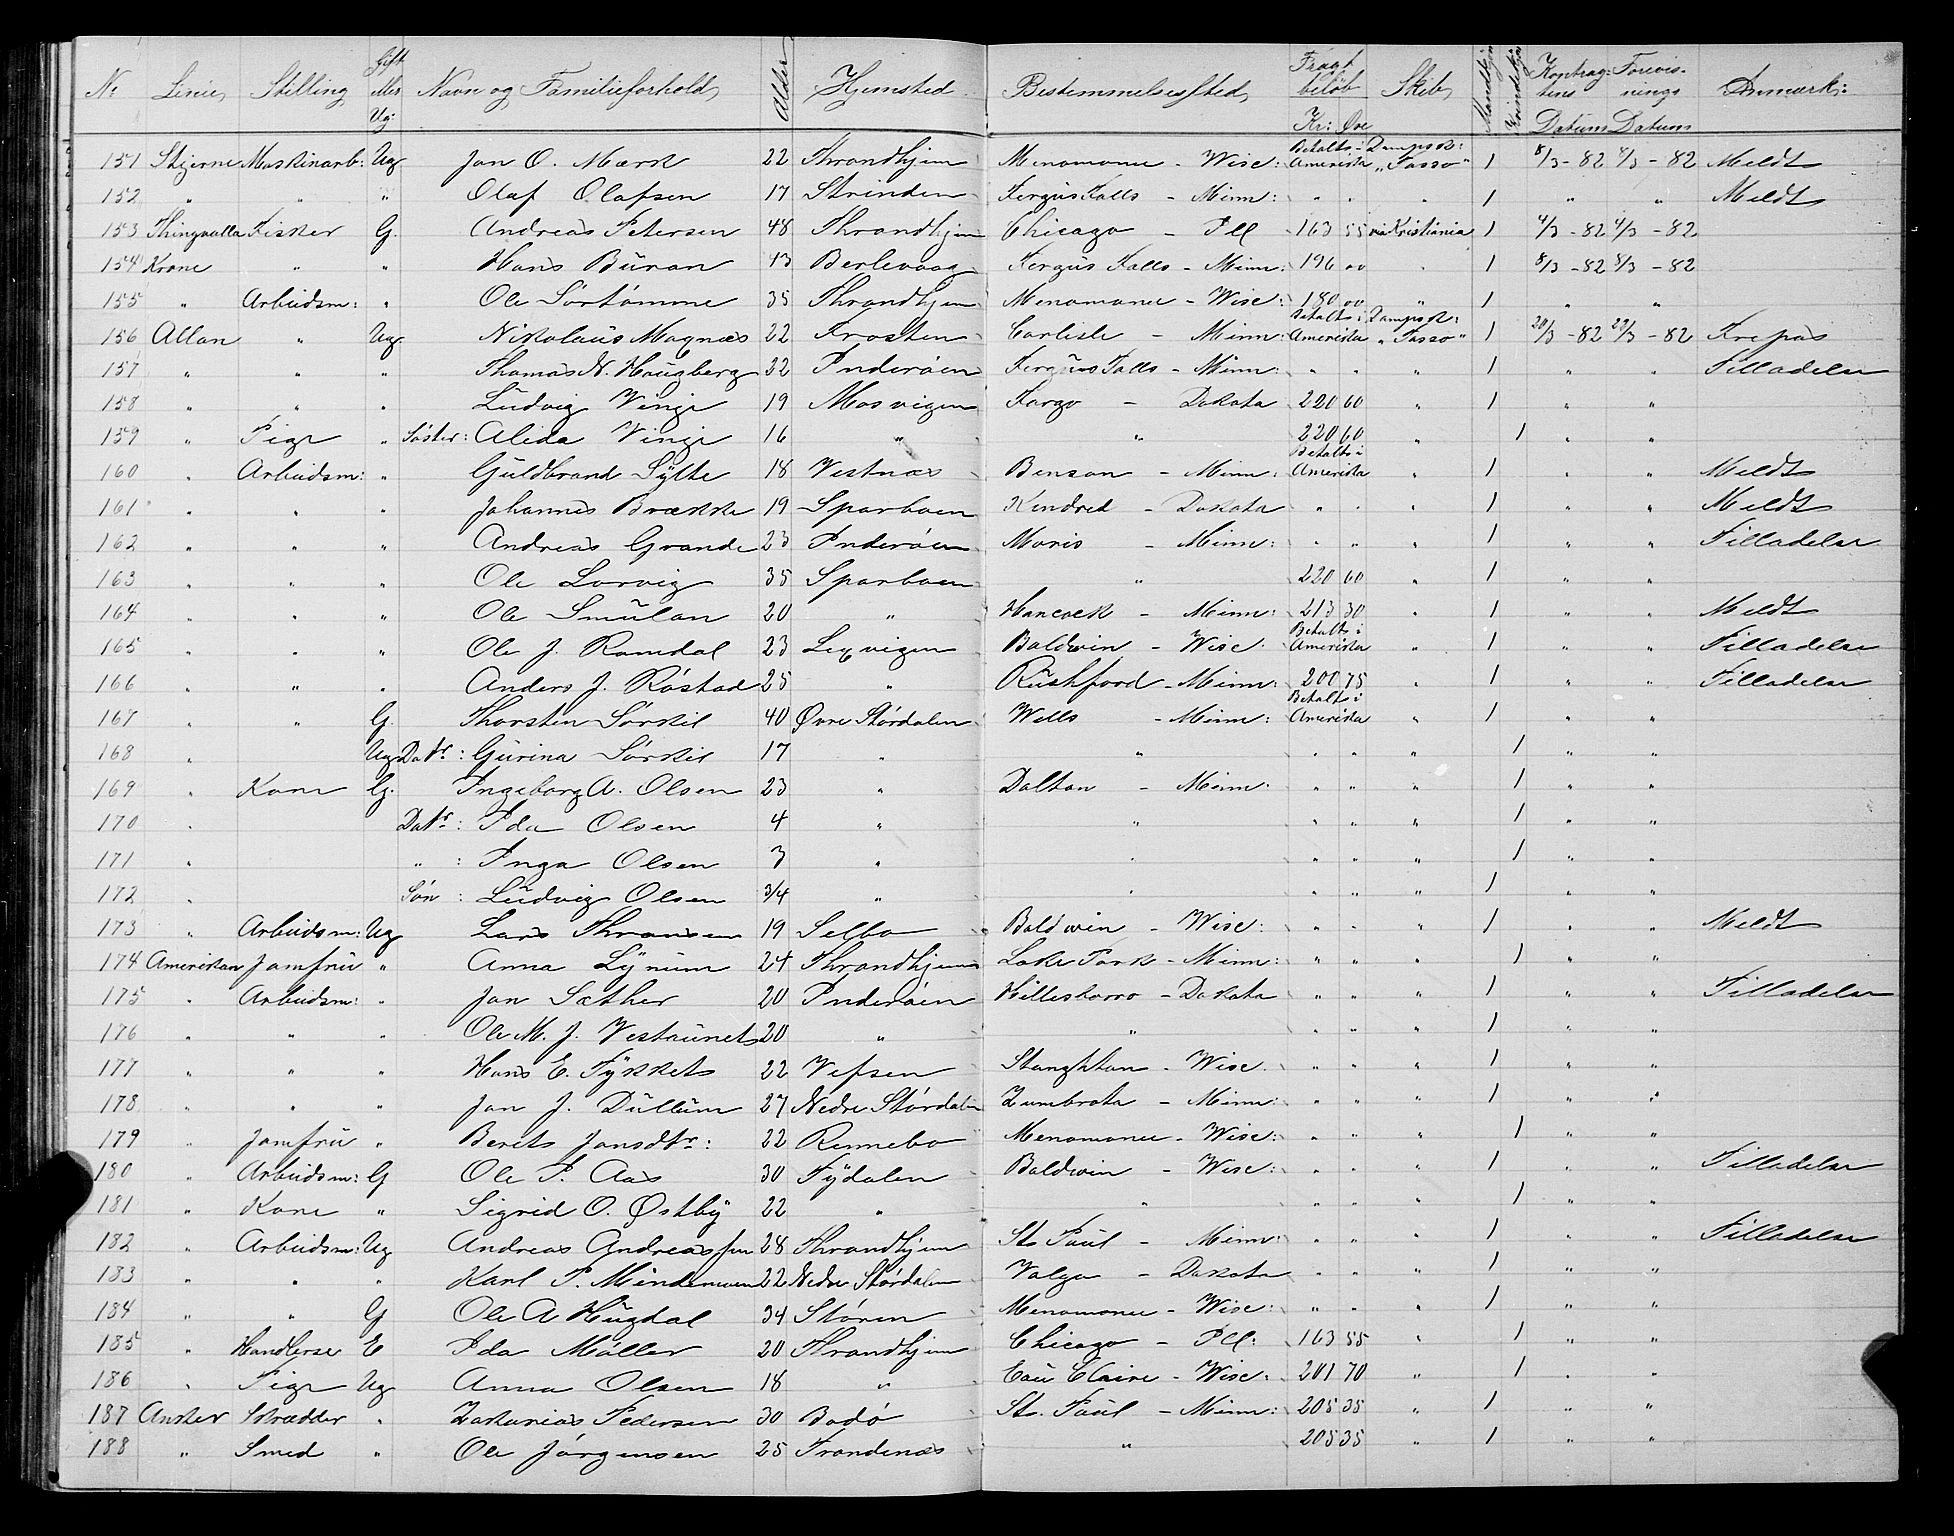 No Linie Stilling Gift eller Ug: Navn og Familieforhold Alder Hjemsted Bestemmelsessted Fragt beløb Kr: Øre Skib Mandkjön Kvindekjön Kontrag: tens Datum Forevis- nings Datum Anmærk:
151 Stjerne Maskinarb: Ug Jon O. Mærk 22 Throndhjem Menomonee - Wisc: Betalt i Amerika Dampsk: "Tasso" 1 8/3 - 82 8/3 - 82 Meldt
152 " " " Olaf Olafsen 17 Strinden Fergus Falls - Minn: " " " 1 " " Meldt
153 Thingvalla Fisker G. Andreas Petersen 48 Throndhjem Chicago - Ill 163 55 via Kristiania 1 4/3 - 82 4/3 - 82
154 Krone " " Hans Buran 43 Berlevaag Fergus Falls - Minn: 196 00 " 1 8/3 - 82 8/3 - 82
155 " Arbeidsm: " Ole Sørtømme 35 Throndhjem Menomonee - Wisc: 180 00 " 1 " "
156 Allan " Ug Nikolaus Magnæs 22 Frosten Carlisle - Minn: Betalt i Amerika Dampsk: "Tasso" 1 29/3 - 82 29/3 - 82 Frepas
157 " " " Thomas N. Haugberg 32 Inderøen Fergus Falls - Minn: " " " 1 " " Tilladelse
158 " " " Ludvig Vinge 19 Mosvigen Fargo - Dakota 220 60 " 1 " "
159 " Pige " Søster: Alida Vinge 16 " " 220 60 " 1 " "
160 " Arbeidsm: " Guldbrand Sylte 18 Vestnæs Benson - Minn: Betalt i Amerika " 1 " " Meldt
161 " " " Johannes Brække 19 Sparboen Kindred - Dakota " " " 1 " " Meldt
162 " " " Andreas Grande 23 Inderøen Moris - Minn: " " " 1 " " Tilladelse
163 " " " Ole Lorvig 35 Sparboen " 220 60 " 1 " "
164 " " " Ole Smulan 20 " Hancock - Minn: 213 30 " 1 " " Meldt
165 " " " Ole J. Ramdal 23 Lexvigen Baldwin - Wisc: Betalt i Amerika " 1 " " Tilladelse
166 " " " Anders J. Røstad 25 " Rushford - Minn: 200 75 " 1 " " Tilladelse
167 " " G. Thorsten Sørkil 40 Øvre Størdalen Wells - Minn: Betalt i Amerika " 1 " "
168 " Ug Datr: Gurina Sørkil 17 " " " " " 1 " "
169 " Kone G. Ingeborg A. Olsen 23 " Dalton - Minn: " " " 1 " "
170 " Datr: Ida Olsen 4 " " " " " 1 " "
171 " " : Inga Olsen 3 " " " " " 1 " "
172 " Søn : Ludvig Olsen 3/4 " " " " " 1 " "
173 " Arbeidsm: Ug Lars Thronsen 19 Selbo Baldwin - Wisc: " " " 1 " " Meldt
174 Amerikan Jomfru " Anna Lynum 24 Throndhjem Lake Park - Minn: " " " 1 " "
175 " Arbeidsm: " Jon Sæther 20 Inderøen Hillesborro - Dakota " " " 1 " " Tilladelse
176 " " " Ole M. J. Vestaunet 20 " " " " " 1 " "
177 " " " Hans E. Tykket 22 Vefsen Stoughton - Wisc. " " " 1 " "
178 " " " Jon J. Dullum 27 Nedre Størdalen Zumbrota - Minn: " " " 1 " "
179 " Jomfru " Berit Jonsdtr: 22 Rennebo Menomonee - Wisc: " " " 1 " "
180 " Arbeidsm: G Ole P. Aas 30 Tydalen Baldwin - Wisc: " " " 1 " " Tilladelse
181 " Kone " Sigrid O. Østby 22 " " " " " 1 " "
182 " Arbeidsm: Ug Andreas Andreassen 28 Throndhjem St. Paul - Minn: " " " 1 " " Tilladelse
183 " " " Karl P. Mindemoen 22 Nedre Størdalen Valga - Dakota " " " 1 " "
184 " " G Ole A Hugdal 34 Støren Menomonee - Wisc: " " " 1 " "
185 " Handlerske E Ida Møller 20 Throndhjem Chicago - Ill: 163 55 " 1 " "
186 " Pige Ug Anna Olsen 18 " Eau Claire - Wisc: 201 70 " 1 " "
187 Anker Skrædder " Zakarias Pedersen 30 Bodø St. Paul - Minn: 205 35 " 1 " "
188 " Smed " Ole Jørgensen 25 Trondenæs " 205 35 " 1 " "